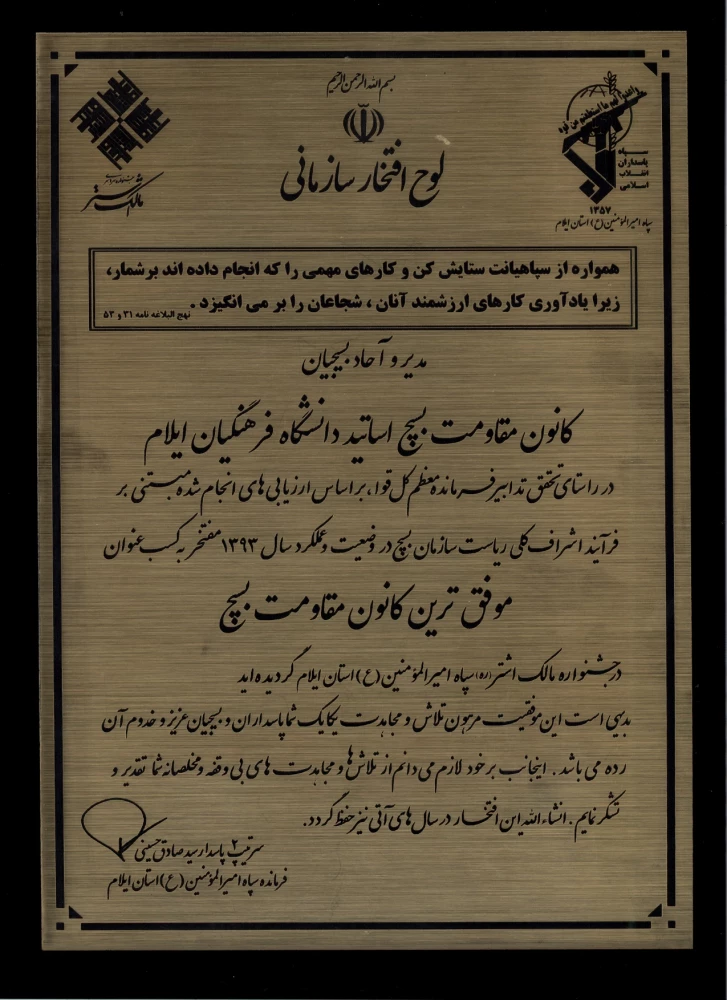 بسم الله الرحمن الرحیم
لوح افتخار سازمانی
مالک اشتر
واعدوا لهم ما استطعتم من قوة
سپاه
پاسداران
انقلاب
اسلامی
۱۳۵۷
سپاه امیرالمؤمنین (ع) استان ایلام
همواره از سپاهیانت ستایش کن و کارهای مهمی را که انجام داده اند برشمار،
زیرا یادآوری کارهای ارزشمند آنان ، شجاعان را بر می انگیزد .
نهج البلاغه نامه ۳۱ و ۵۳
مدیر و آحاد بسیجیان
کانون مقاومت بسیج اساتید دانشگاه فرهنگیان ایلام
در راستای تحقق تدابیر فرمانده معظم کل قوا، بر اساس ارزیابی های انجام شده مبتنی بر
فرآیند اشراف کلی ریاست سازمان بسیج در وضعیت و عملکرد سال ۱۳۹۳ مفتخر به کسب عنوان
موفق ترین کانون مقاومت بسیج
در جشنواره مالک اشتر (ره) سپاه امیرالمؤمنین (ع) استان ایلام گردیده اید
بدیهی است این موفقیت مرهون تلاش و مجاهدت یکایک شما پاسداران و بسیجیان عزیز و خدوم آن
رده می باشد . اینجانب بر خود لازم می دانم از تلاش ها و مجاهدت های بی وقفه و مخلصانه شما تقدیر و
تشکر نمایم . انشاءالله این افتخار در سال های آتی نیز حفظ گردد.
سرتیپ ۲ پاسدار سید صادق حسینی
فرمانده سپاه امیرالمؤمنین (ع) استان ایلام